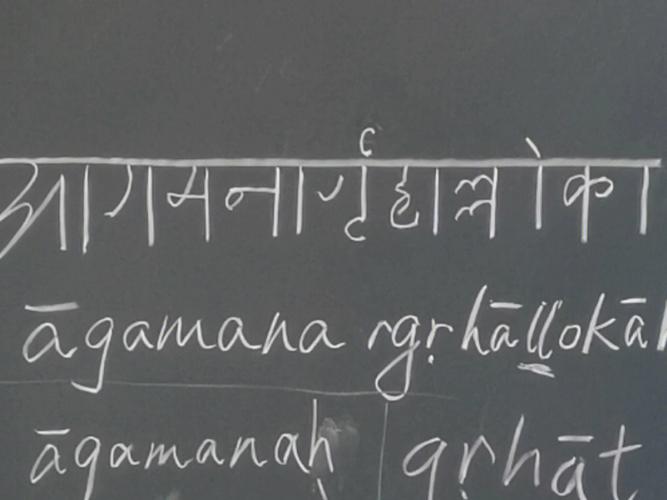 आगमनार्गृहाल्लोका
āgamana rgṛhāllokā
āgamanaḥ gṛhāt